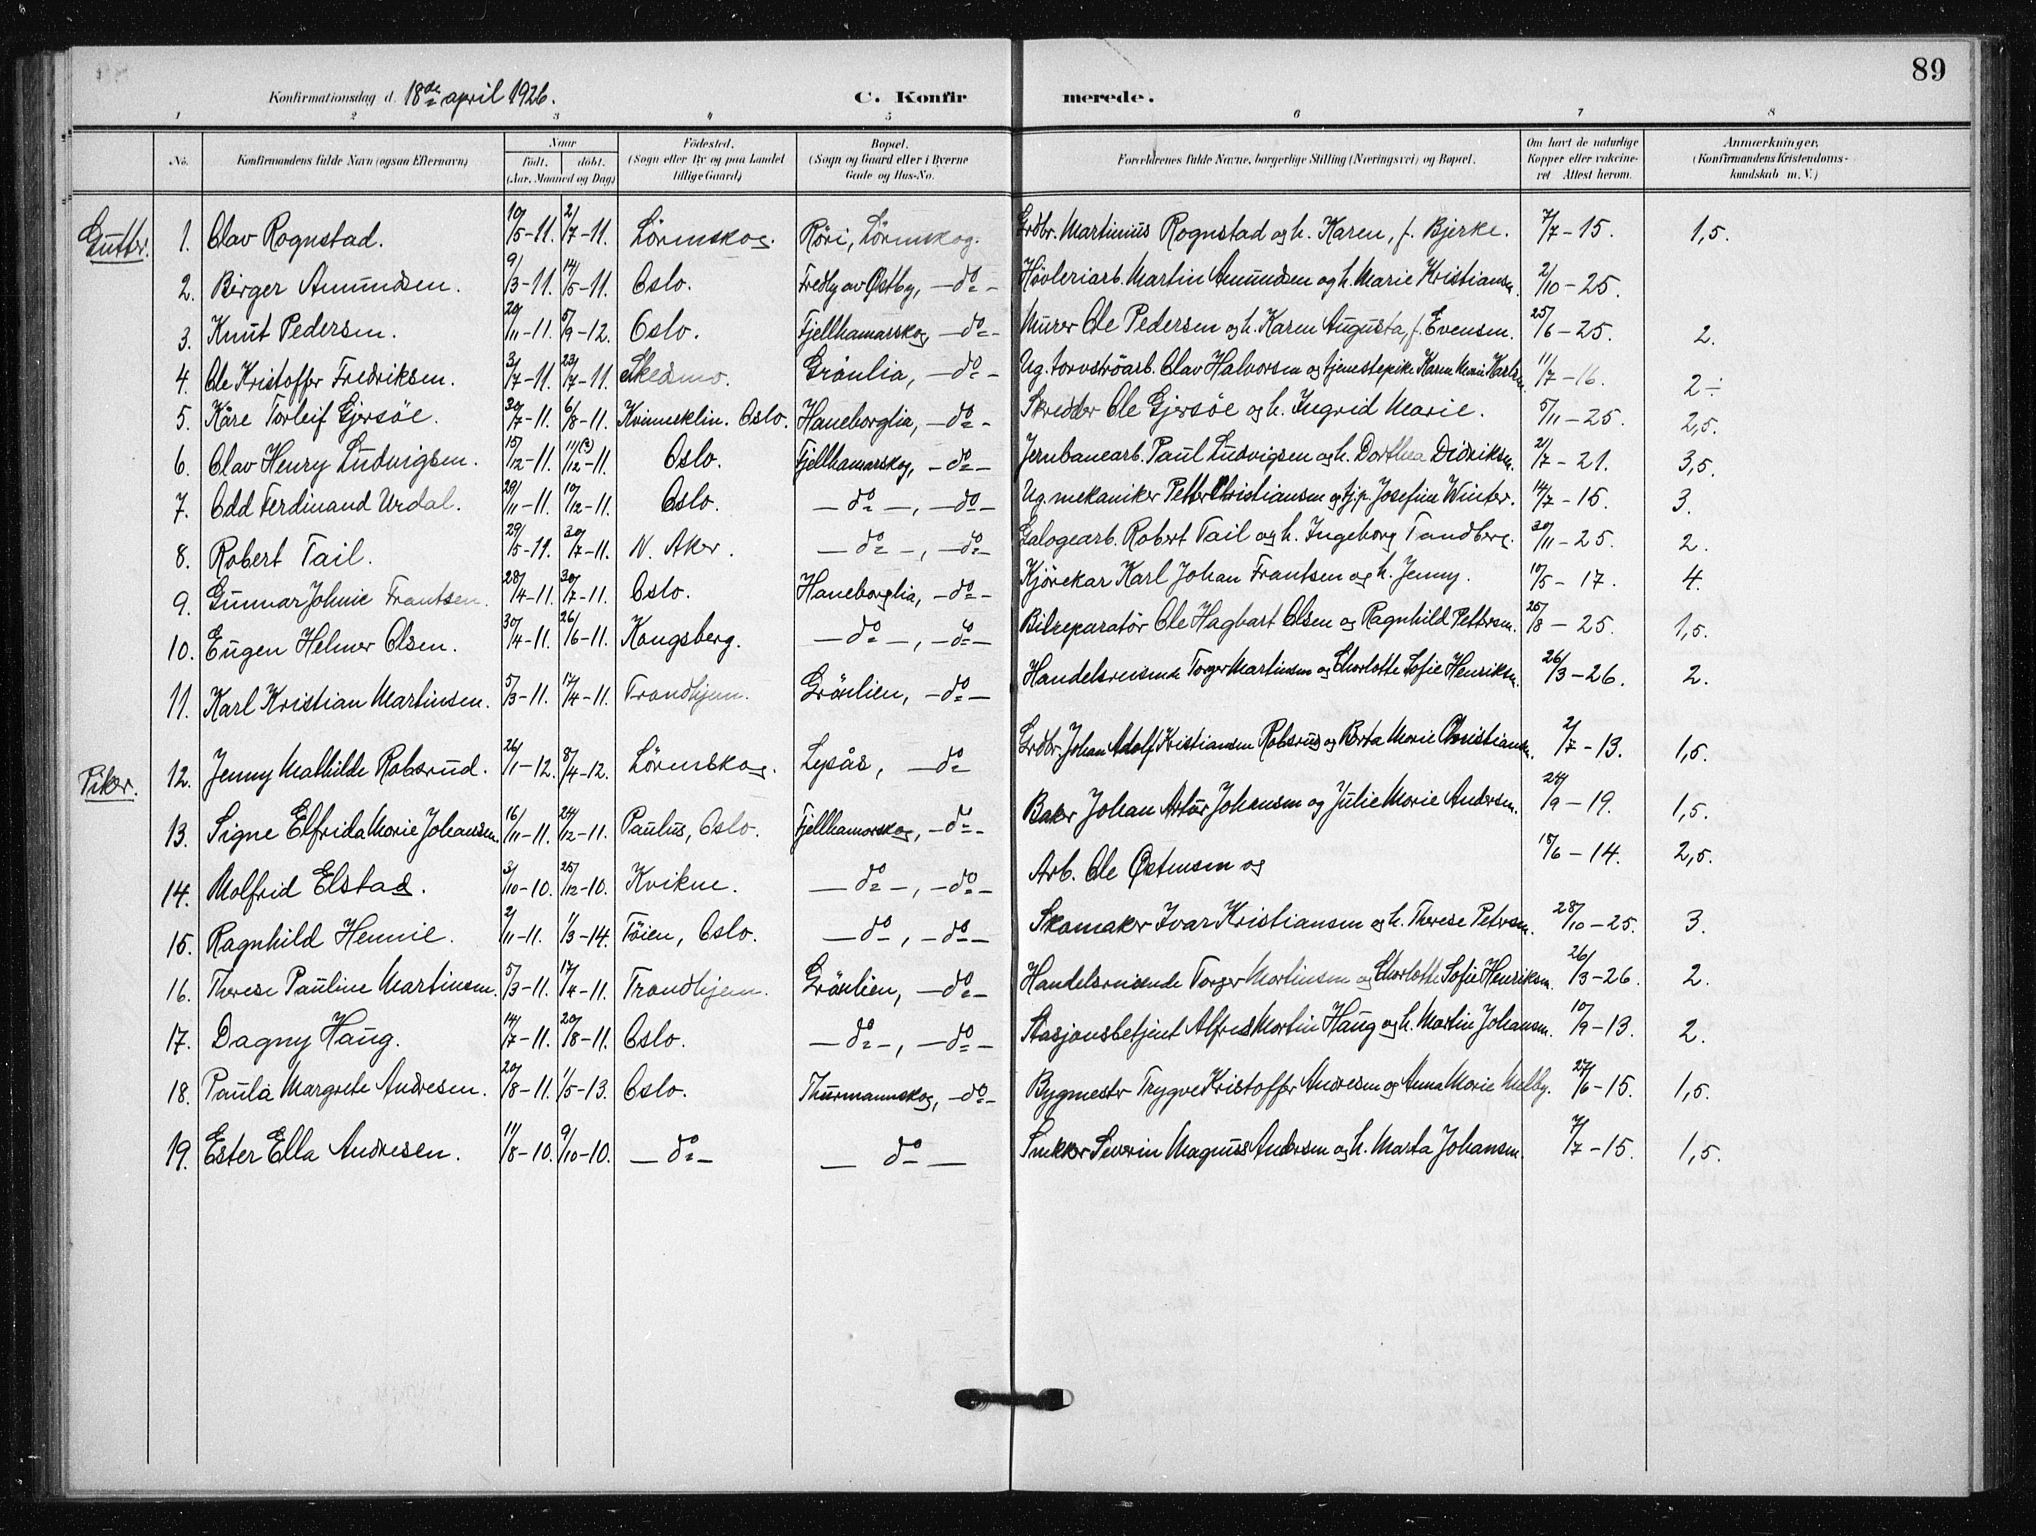 89
Konfirmationsdag d. 18de april 1926. C. Konfirmerede.
1 2 3 4 5 6 7 8
No. Konfirmandens fulde Navn (ogsaa Efternavn) Naar født. døbt. (Aar, Maaned og Dag) Fødested. (Sogn eller By og paa Landet tillige Gaard) Bopæl. (Sogn og Gaard eller i Byerne Gade og Hus-No. Forældrenes fulde Navne, borgerlige Stilling (Næringsvei) og Bopæl. Om havt de naturlige Kopper eller vakcineret Attest herom. Anmærkninger. (Konfirmandens Kristendomskundskab m. V.)
Gutter. 1. Olav Rognstad. 10/5-11. 2/7-11. Lörenskog. Röri, Lörenskog. Grdbr. Martinius Rognstad og h. Karen, f. Bjerke. 7/7-15. 1,5.
2. Birger Amundsen. 9/3-11. 14/5-11. Oslo. Fredly av Østby, -do- Høvleriarb. Martin Amundsen og h. Marie Kristiansen. 2/10-25.
3. Knut Pedersen. 20/11-11. 5/9-12. Oslo. Fjellhamarskog, -do- Murer Ole Pedersen og h. Karen Augusta, f. Evensen. 25/6-25. 2.
4. Ole Kristoffer Fredriksen. 3/7-11. 23/7-11. Skedsmo. Grönlia, -do- Ug. torvströarb. Olav Halvorsen og tjenestepike Karen Marie Karlsen. 11/7-16. 2÷
5. Kåre Torleif Gjersöe. 30/7-11. 6/8-11. Kvinneklin. Oslo. Haneborglia, -do- Skredder Ole Gjersöe og h. Ingrid Marie. 5/11-25. 2,5.
6. Olav Henry Ludvigsen. 15/12-11. 11(?)/12-11. Oslo. Fjellhamarskog, -do- Jernbanearb. Paul Ludvigsen og h. Dorthea Didriksen. 2/7-21. 3,5.
7. Odd Ferdinand Urdal. 29/11-11. 10/12-11. Oslo. -do-, -do- Ug. mekaniker Petter Christiansen og tjp. Josefine Winter. 14/7-15. 3.
8. Robert Tail. 29/5-11. 30/7-11. N. Aker. -do-, -do- Galogearb. Robert Tail og h. Ingeborg Tandberg. 30/11-25. 2.
9. Gunnar Johnie Frantsen. 28/4-11. 30/7-11. Oslo. Haneborglia, -do- Kjörekar Karl Johan Frantsen og h. Jenny. 10/5-17. 4.
10. Eugen Helmer Olsen. 30/4-11. 26/6-11. Kongsberg. -do-, -do- Bilreparatör Ole Hagbart Olsen og Ragnhild Pettersen. 25/8-25. 1,5.
11. Karl Kristian Martinsen. 5/3-11. 17/4-11. Trondhjem. Grönlien, -do- Handelsreisende Torger Martinsen og Charlotte Sofie Henriksen. 26/3-26. 2.
Piker. 12. Jenny Mathilde Robsrud. 26/1-12. 8/4-12. Lörenskog. Lysås, -do Grdbr. Johan Adolf Kristiansen Robsrud og Berta Marie Christiansen. 2/7-13. 1,5.
13. Signe Elfrida Marie Johansen. 16/11-11. 24/12-11. Paulus, Oslo. Fjellhamarskog, -do- Baker Johan Artur Johansen og Julie Marie Andersen. 24/9-19. 1,5.
14. Molfrid Elstad. 3/10-10. 25/12-10. Kvikne. -do-, -do- Arb. Ole Østensen og 15/6-14. 2,5.
15. Ragnhild Hennie. 2/11-11. 1/3-14. Töien, Oslo. -do-, -do- Skomaker Ivar Kristiansen og h. Therese Petersen. 28/10-25. 3.
16. Therese Pauline Martinsen. 5/3-11. 17/4-11. Trondhjem. Grönlien, -do- Handelsreisende Torger Martinsen og Charlotte Sofie Henriksen. 26/3-26. 2.
17. Dagny Haug. 14/7-11. 20/8-11. Oslo. -do-, -do- Stasjonsbetjent Alfred Martin Haug og h. Martin Johansen. 10/9-13. 2.
18. Paula Margrete Andresen. 20/8-11. 1/5-13. Oslo. Thurmannskog, -do- Bygmester Trygve Kristoffer Andresen og Anna Marie Melby. 27/6-15. 1,5.
19. Ester Ella Andresen. 11/8-10. 9/10-10. -do- -do- Snekker Severin Magnus Andersen og h. Marta Johansen. 7/7-15. 1,5.